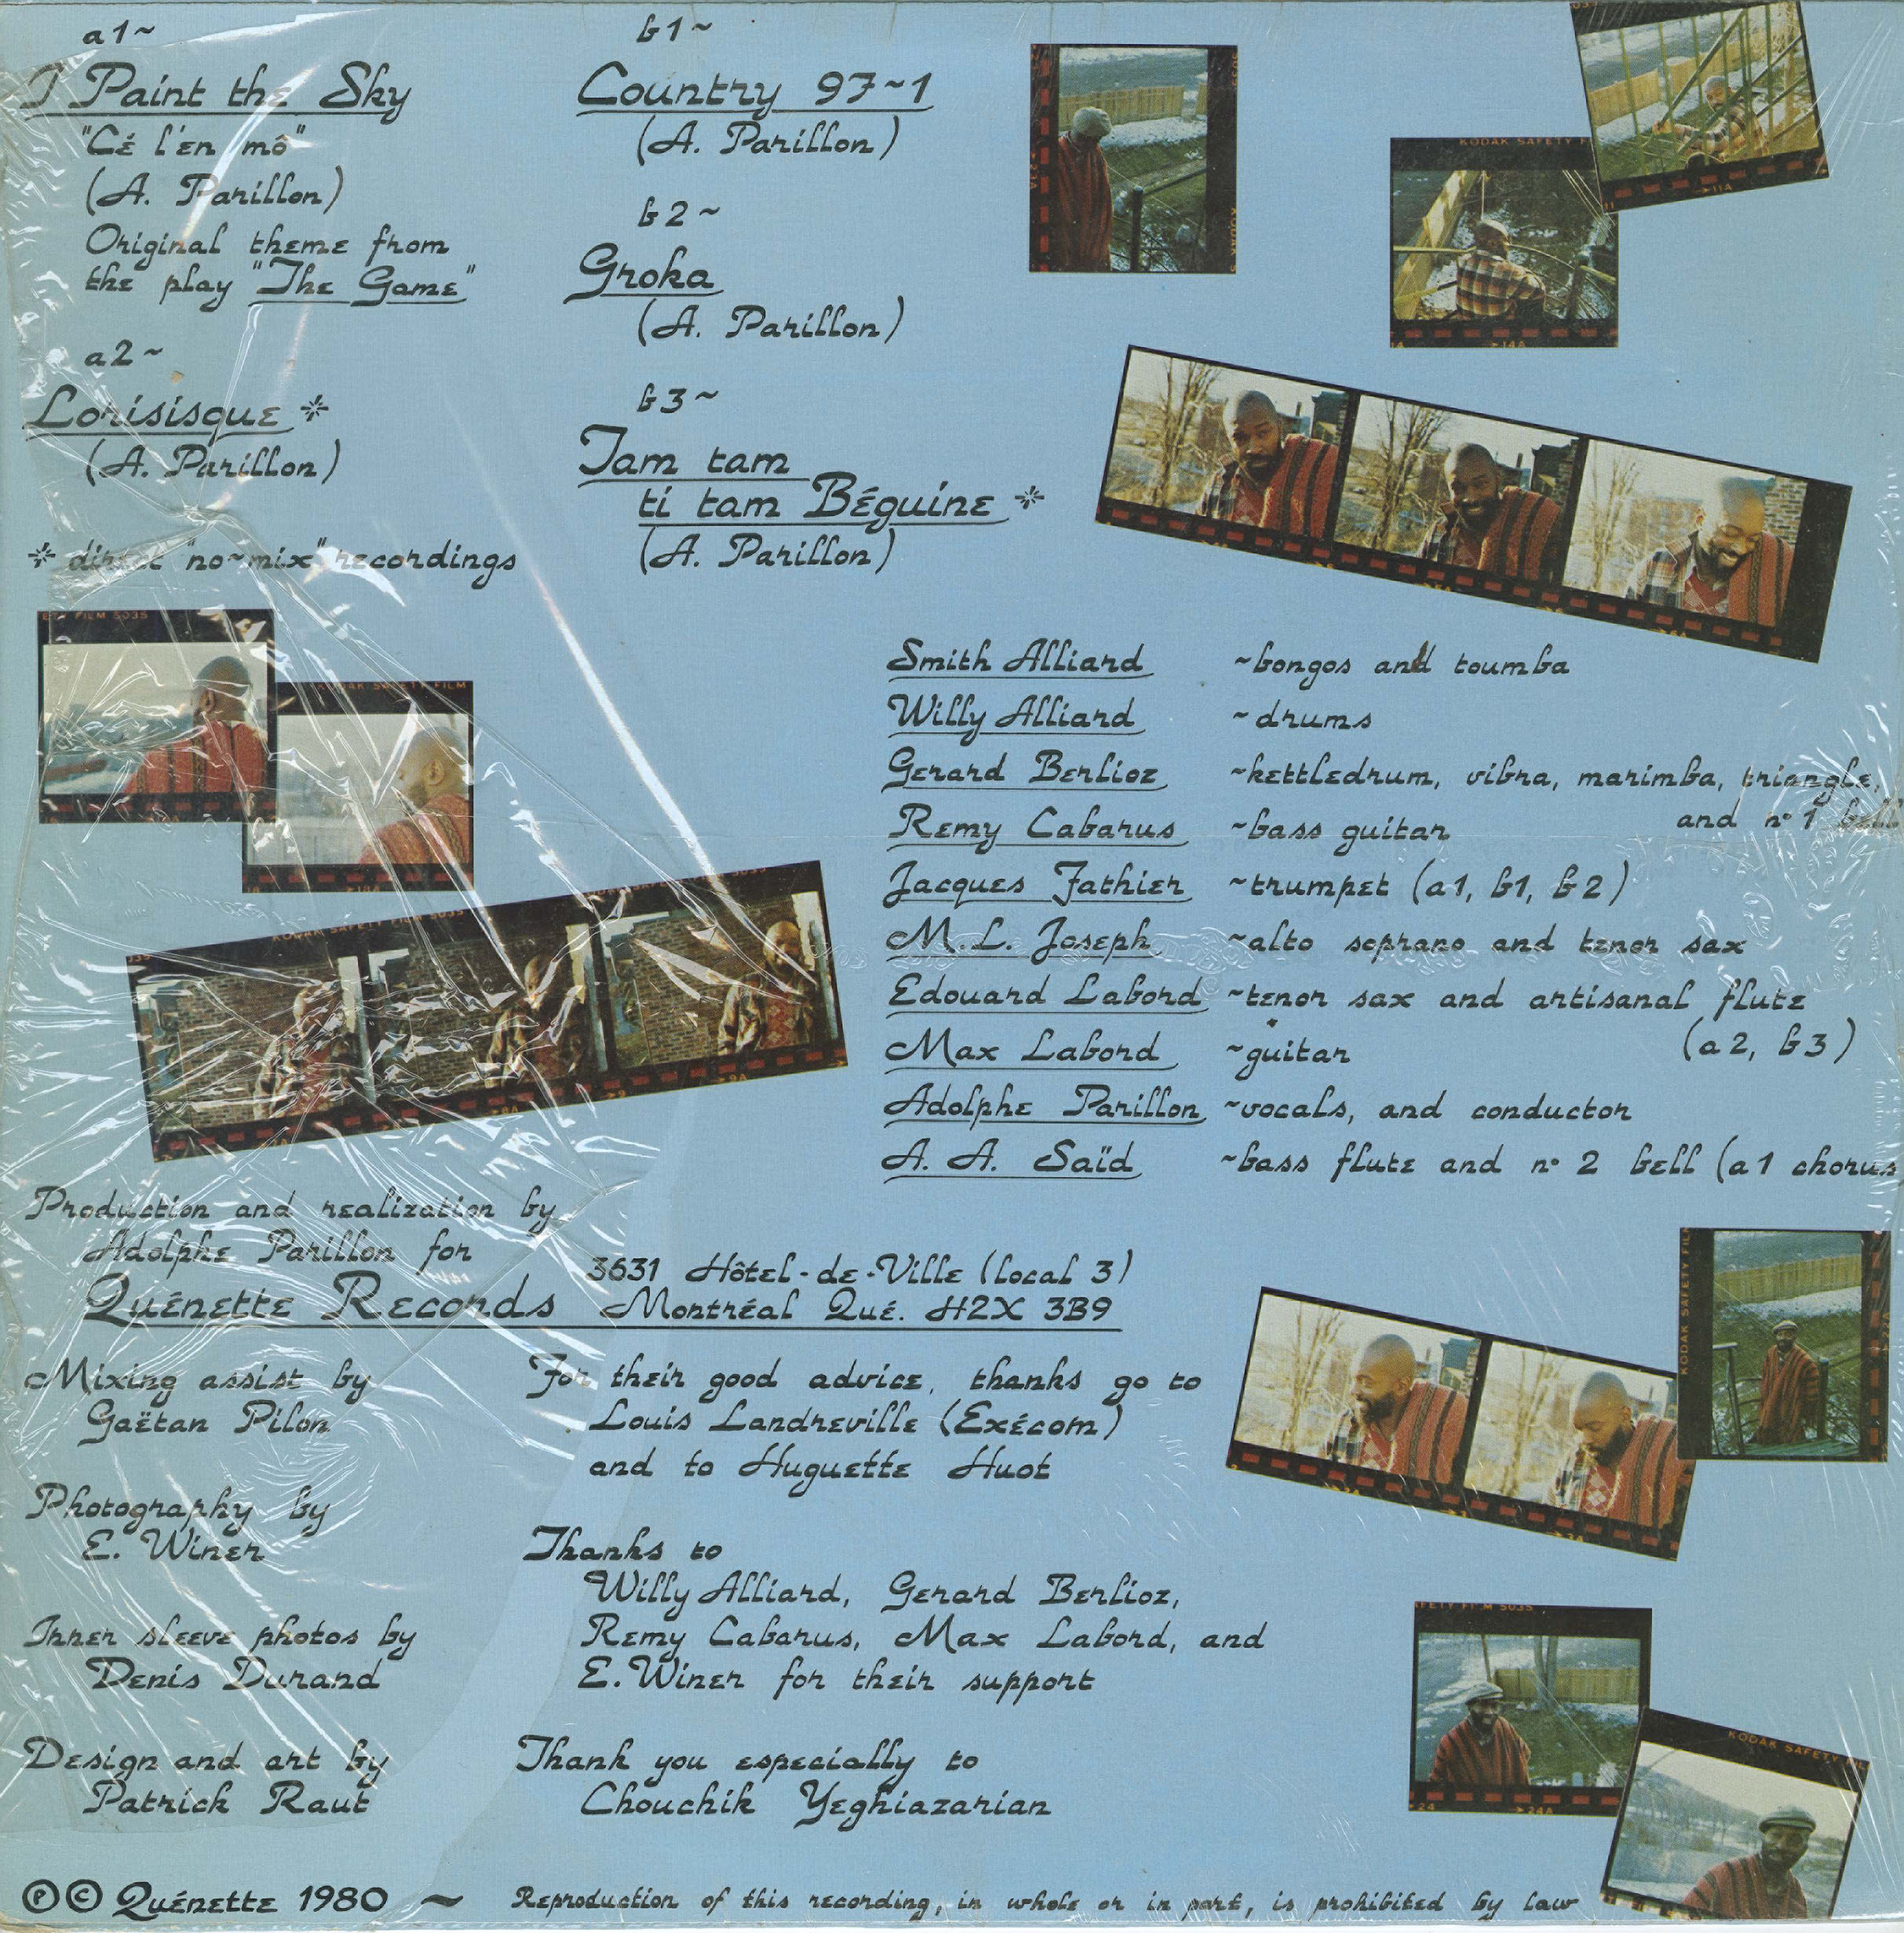 a1~
I Paint the Sky
"Cé l'en mô"
(A. Parillon)
Original theme from
the play "The Game"
a2~
Lorisisque *
(A. Parillon)
* direct "no~mix" recordings
b1~
Country 97~1
(A. Parillon)
b2~
Groka
(A. Parillon)
b3~
Tam tam
ti tam Béguine *
(A. Parillon)
KODAK SAFETY F
11A
14A
ETY FILM 5035
KODAK SAFETY FILM
KODAK SAFETY FILM 5035
8A
9
9A
Smith Alliard ~bongos and toumba
Willy Alliard ~drums
Gerard Berlioz ~kettledrum, vibra, marimba, triangle,
and n° 1 bell
Remy Cabarus ~bass guitar
Jacques Fathier ~trumpet (a1, b1, b2)
M.L. Joseph ~alto soprano and tenor sax
Edouard Labord ~tenor sax and artisanal flute
(a2, b3)
Max Labord ~guitar
Adolphe Parillon ~vocals, and conductor
A. A. Saïd ~bass flute and n° 2 bell (a1 chorus
Production and realization by
Adolphe Parillon for
Quénette Records
3631 Hôtel-de-Ville (local 3)
Montréal Qué. H2X 3B9
Mixing assist by
Gaëtan Pilon
Photography by
E. Winer
Inner sleeve photos by
Denis Durand
Design and art by
Patrick Raut
For their good advice, thanks go to
Louis Landreville (Exécom)
and to Huguette Huot
Thanks to
Willy Alliard, Gerard Berlioz,
Remy Cabarus, Max Labord, and
E. Winer for their support
Thank you especially to
Chouchik Yeghiazarian
KODAK SAFETY FIL
FETY FILM 5035
24
24A
KODAK SAFETY
Ⓟ © Quénette 1980 ~ Reproduction of this recording, in whole or in part, is prohibited by law